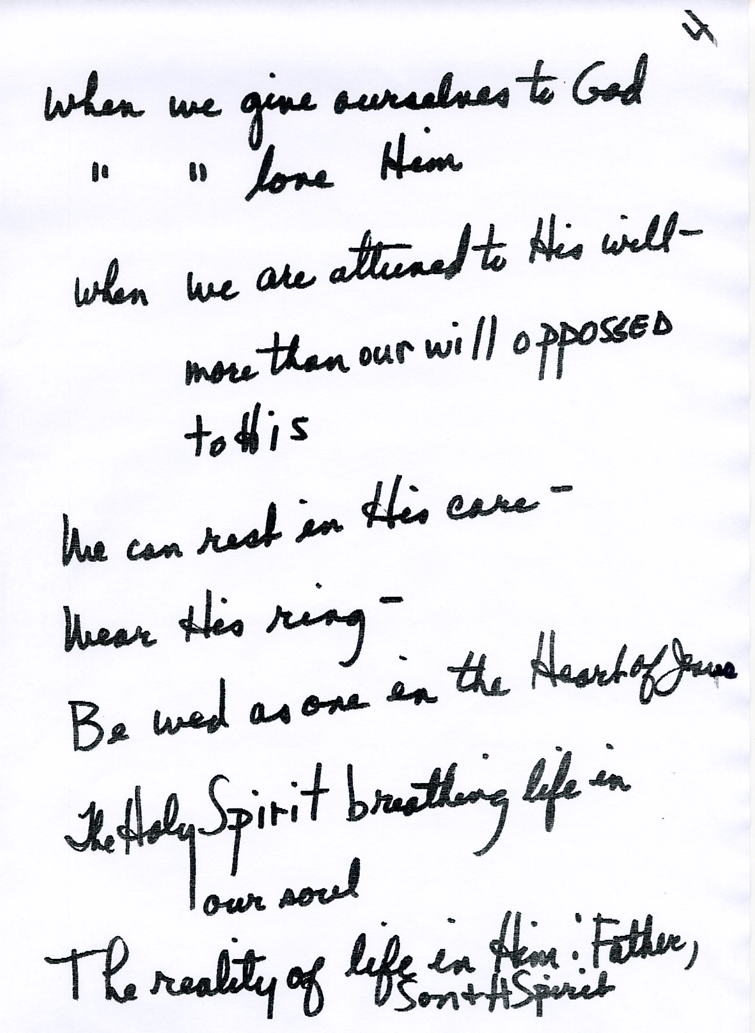 4
When we give ourselves to God
" " love Him
when we are attuned to His will-
more than our will oppossed
to His
We can rest in His care-
Wear His ring-
Be wed as one in the Heart of Jesus
The Holy Spirit breathing life in
our soul
The reality of life in Him: Father,
Son + H Spirit